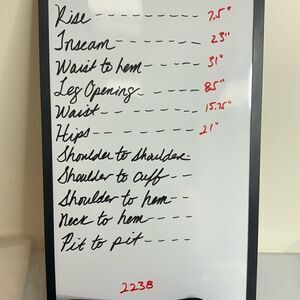 Rise - - - - - - - - 7.5"
Inseam - - - - - - - 23"
Waist to hem - - - - 31"
Leg Opening - - - - 85"
Waist - - - - - - - 15.75"
Hips - - - - - - - 21"
Shoulder to shoulder -
Shoulder to cuff - - -
Shoulder to hem - - -
Neck to hem - - - -
Pit to pit - - - -
2238